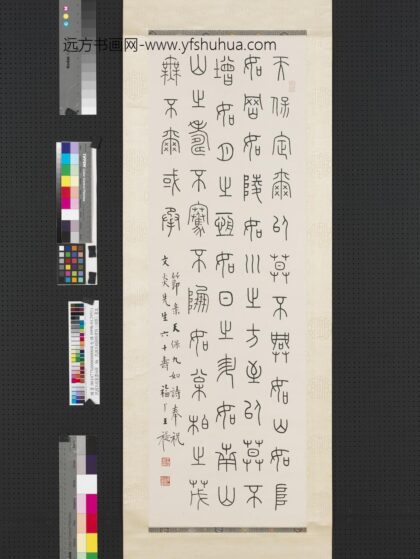 远方书画网-www.yfshuhua.com
天保定爾以莫不興如山如阜
如岡如陵如川之方至以莫不
增如月之恆如日之升如南山
山之壽不騫不崩如松柏之茂
無不爾或承
節彔天保九如詩奉祝
文炎先生六十壽 福厂王禔